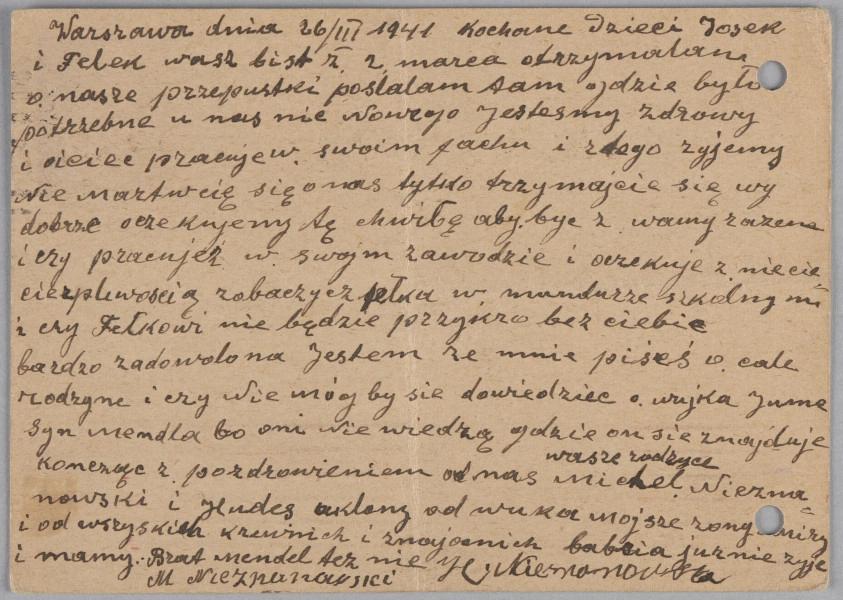 Warszawa dnia 26/III 1941 Kochane Dzieci Josek
i Felek wasz list z. 2 marca otrzymalam
o. nasze przepustki poslalam tam gdzie było
potrzebne u nas nie Nowego Jestesmy zdrowy
i oiciec pracuje w. swoim fachu i z tego zyjemy
Nie Martwcię się o nas tytko trzymajcie się wy
dobrze oczekujemy tę chwilę aby. byc z. wamy razem
i czy pracujeż w. swojm zawodzie i oczekuje z. niecie=
cierpliwoscią zobaczyc z Felka w. mundurze szkolnym
i czy Felkowi nie będzie przykro bez ciebie
bardzo zadowolona Jestem ze mnie piśeś o. cale
rodzyne i czy Nie móg by sie dowiedziec o. wujka Jume
syn Mendla bo oni Nie wiedzą gdzie on sie znajduje
koncząc z. pozdrowieniem od nas wasze rodzyce Michel. Niezna=
nowski i Hudes uklony od wuka Mojsze zony
i od wszyskich krewnich i znajomich babcia juz nie zyje
i mamy. Brat Mendel tez nie
M Nieznanowski